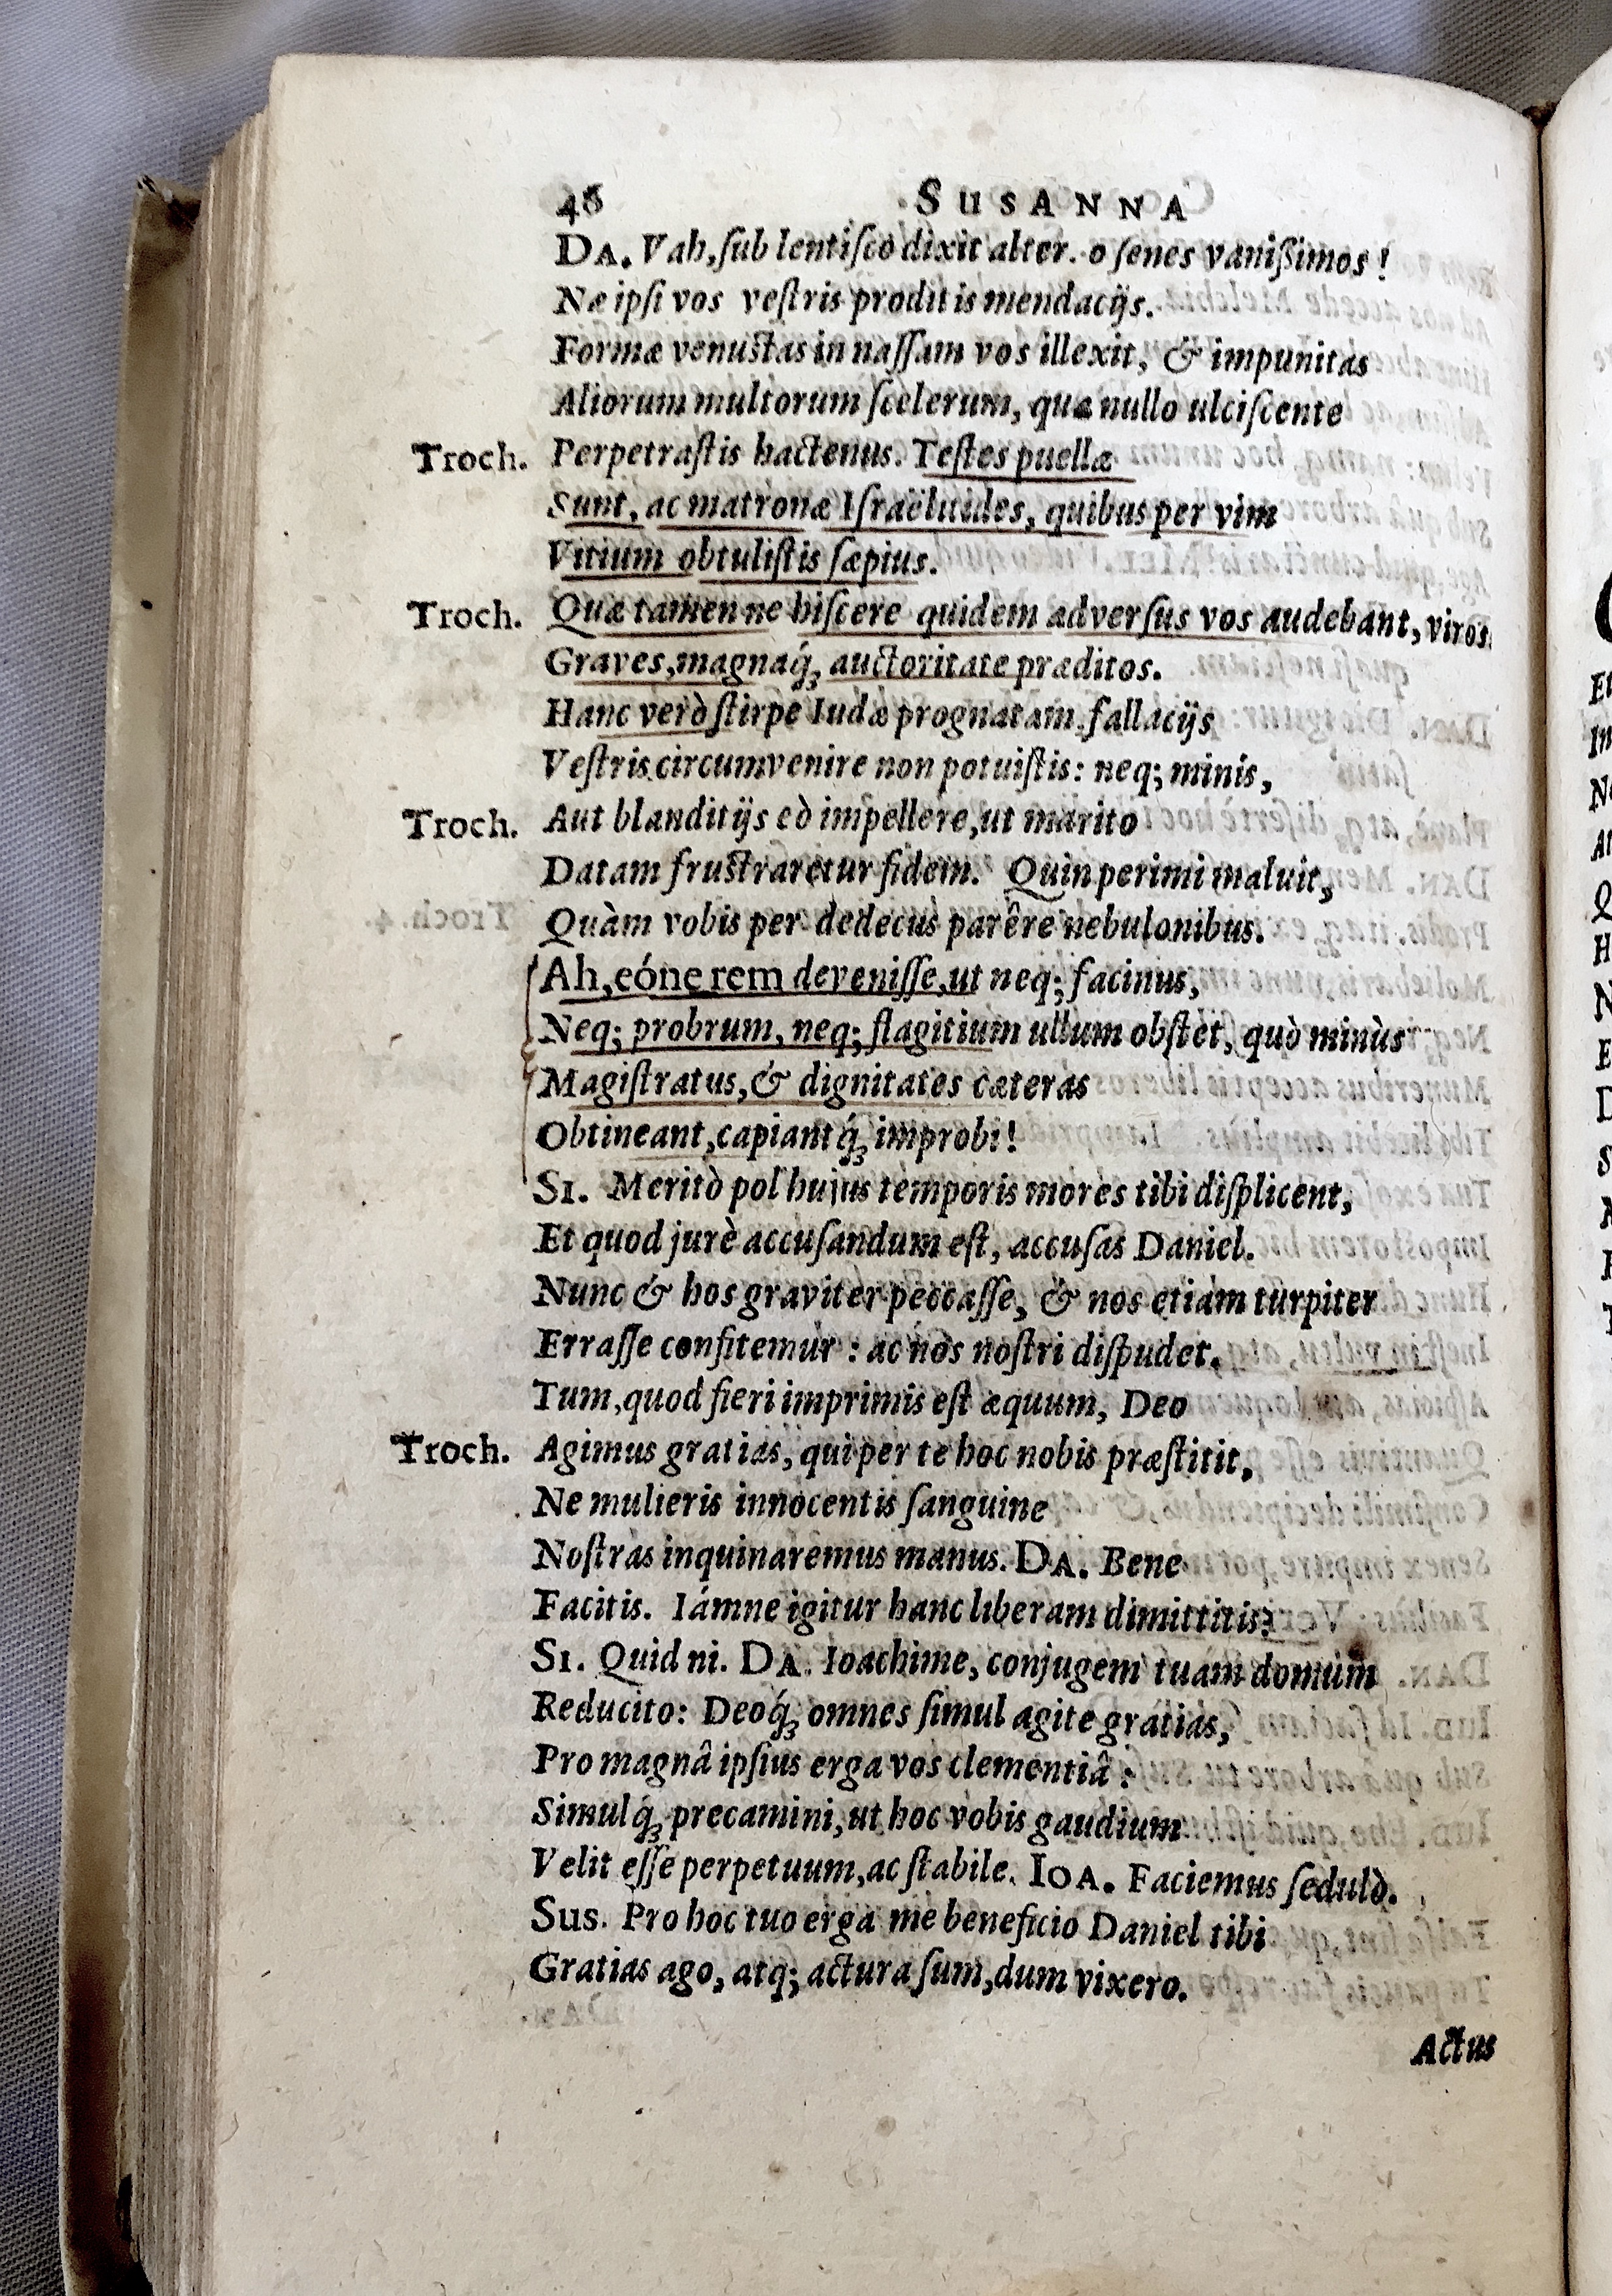 46 SUSANNA
DA. Vah, ſub lentiſco dixit alter. o ſenes vanißimos!
Næ ipſi vos veſtris proditis mendacijs.
Formæ venustas in naſſam vos illexit, & impunitas
Aliorum multorum ſcelerum, quæ nullo ulciſcente
Troch. Perpetraſtis hactenus. Teſtes puellæ
Sunt, ac matronæ Iſraëlitides, quibus per vim
Vitium obtuliſtis ſæpius.
Troch. Quæ tamen ne hiſcere quidem adverſus vos audebant, viros
Graves, magnaq́ꝫ auctoritate præditos.
Hanc verò ſtirpe Iudæ prognatam fallacijs
Veſtris circumvenire non potuiſtis: neq; minis,
Troch. Aut blanditijs eò impellere, ut marito
Datam frustraretur fidem. Quin perimi maluit,
Quàm vobis per dedecus parêre nebulonibus.
Ah, eóne rem deveniſſe, ut neq; facinus,
Neq; probrum, neq; flagitium ullum obſtet, quò minùs
Magiſtratus, & dignitates cæteras
Obtineant, capiantq́ꝫ improbi!
SI. Meritò pol hujus temporis mores tibi diſplicent,
Et quod jurè accuſandum eſt, accuſas Daniel.
Nunc & hos graviter peccaſſe, & nos etiam turpiter
Erraſſe confitemur: ac nos noſtri diſpudet.
Tum, quod fieri imprimis eſt æquum, Deo
Troch. Agimus gratias, qui per te hoc nobis præſtitit,
Ne mulieris innocentis ſanguine
Noſtras inquinaremus manus. DA. Bene
Facitis. Iámne igitur hanc liberam dimittitis?
SI. Quid ni. DA. Ioachime, conjugem tuam domum
Reducito: Deoq́ꝫ omnes ſimul agite gratias,
Pro magnâ ipſius erga vos clementiâ:
Simulq́ꝫ precamini, ut hoc vobis gaudium
Velit eſſe perpetuum, ac ſtabile. IOA. Faciemus ſedulò.
SUS. Pro hoc tuo erga me beneficio Daniel tibi
Gratias ago, atq; actura ſum, dum vixero.
Actus